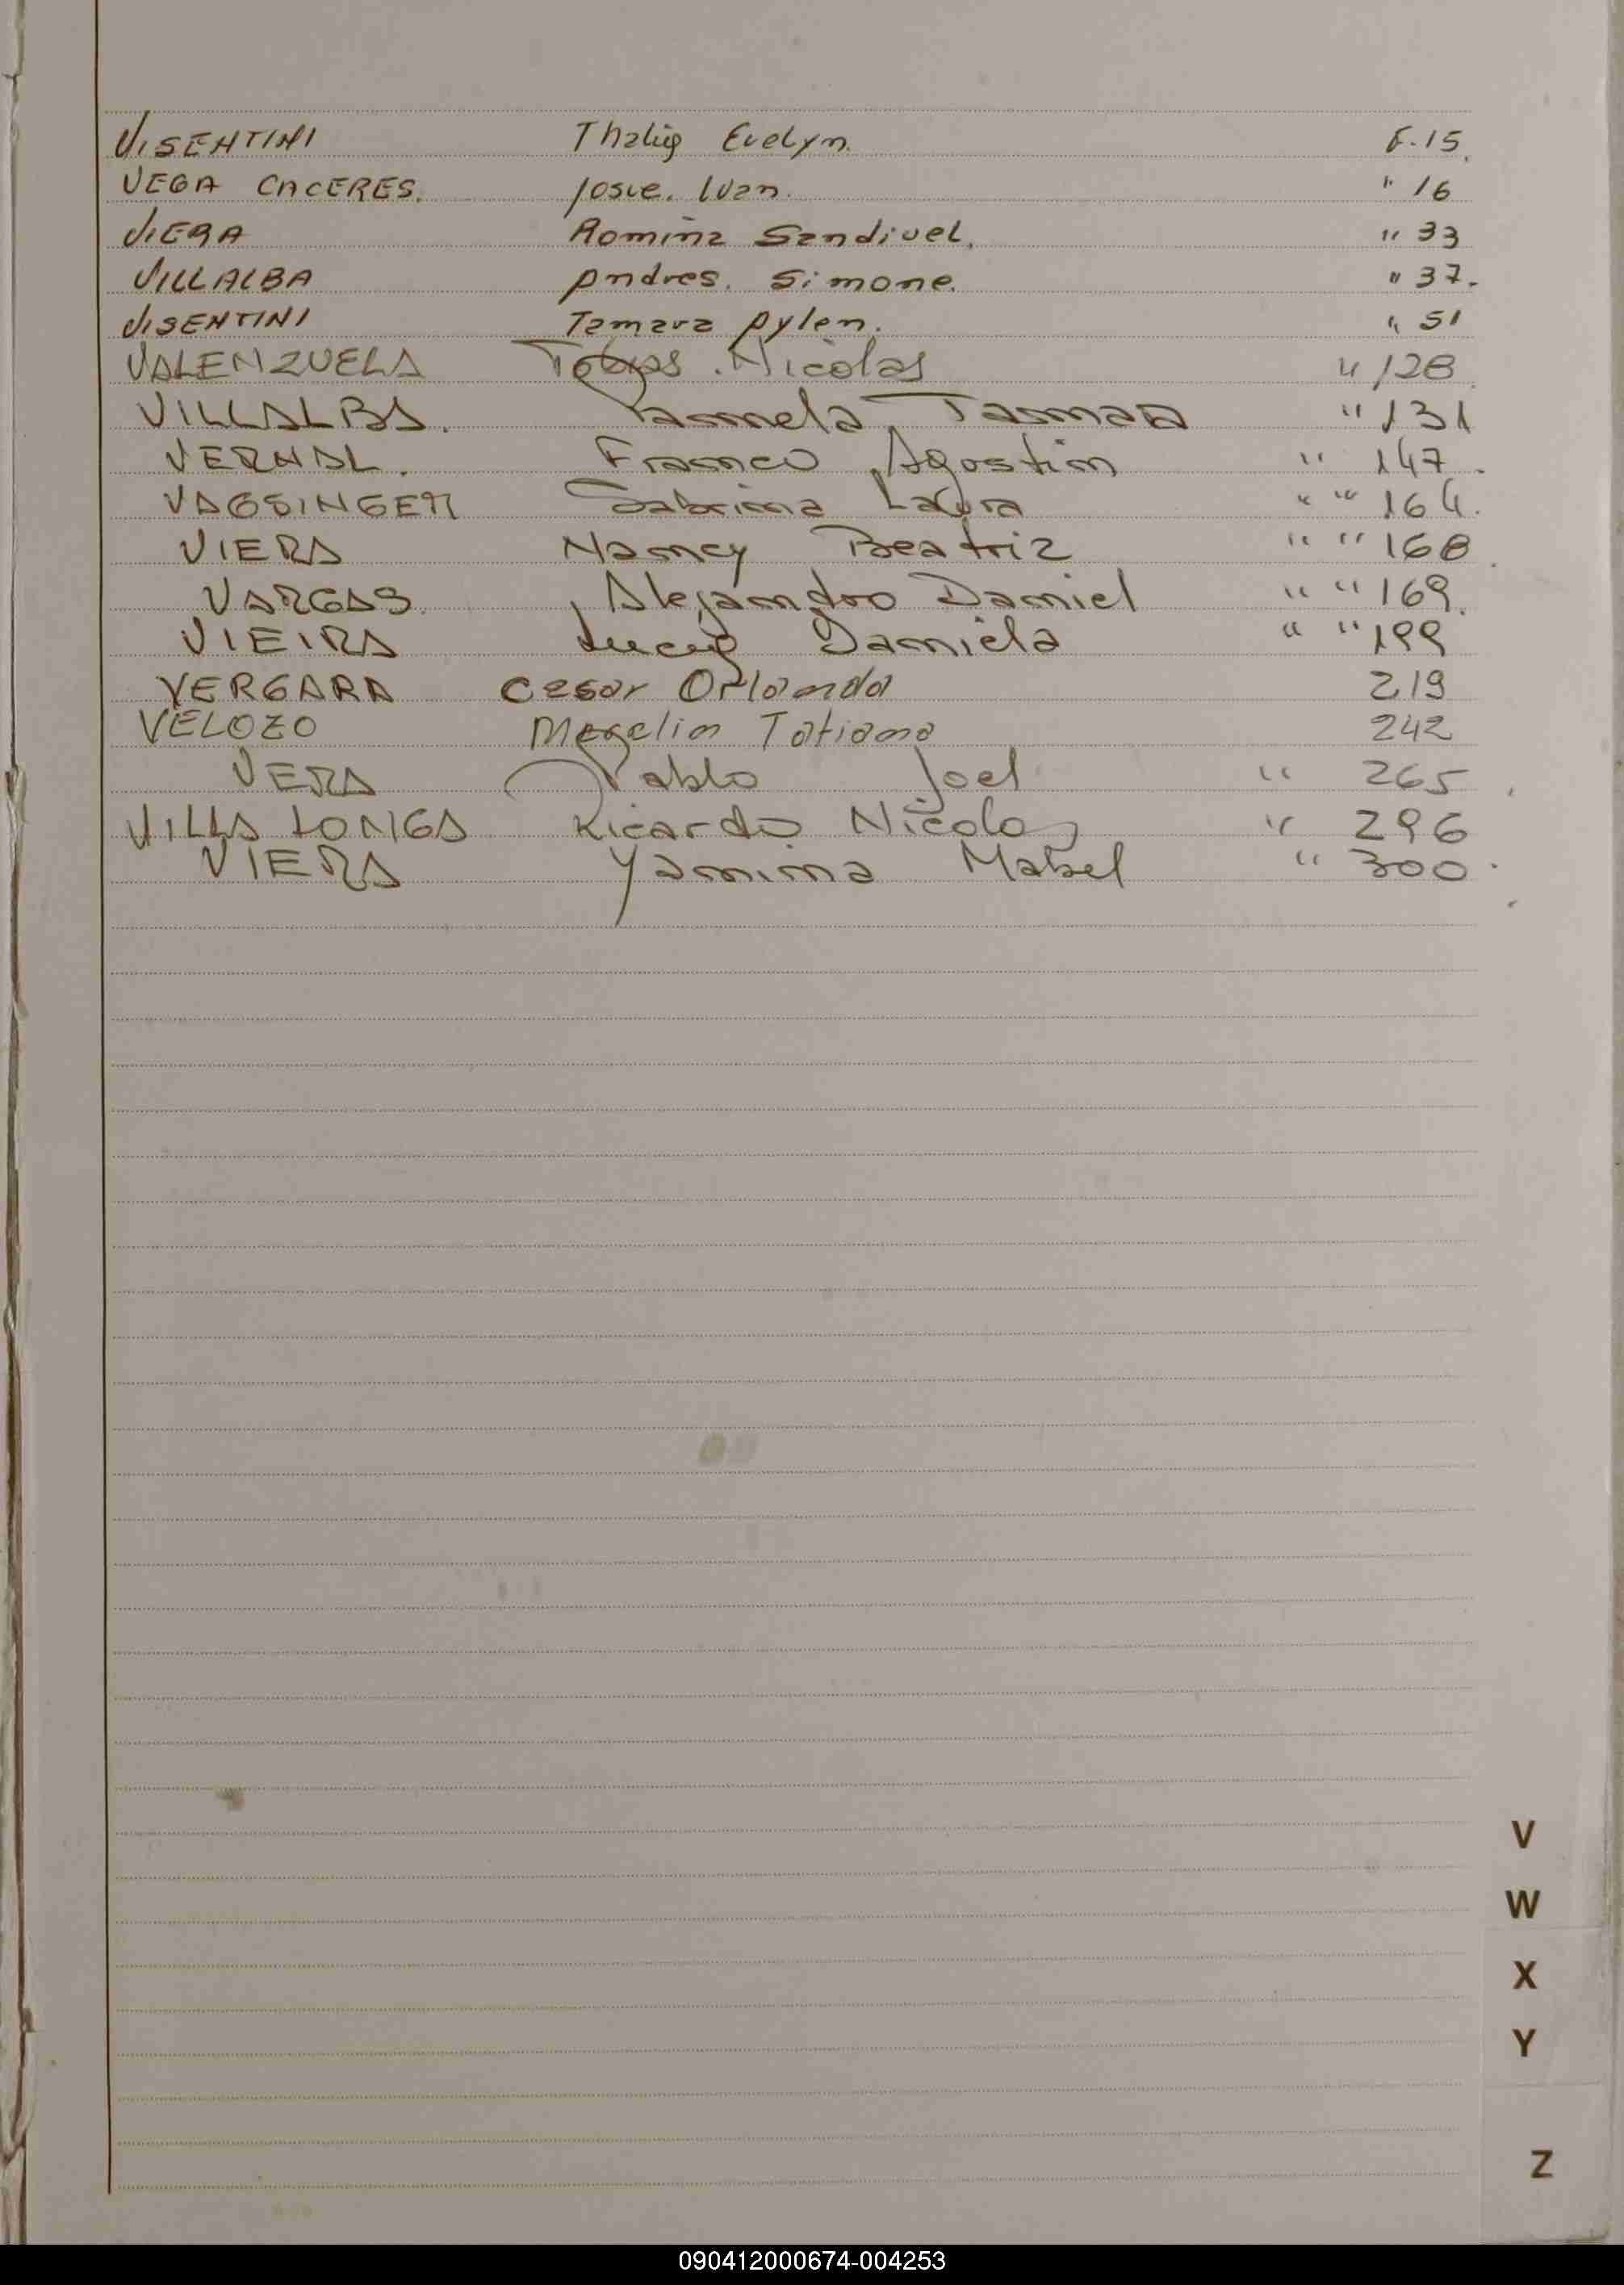 VISENTINI Thalia Evelyn. F. 15.
VEGA CACERES. Josue. Ivan. " 16
VIERA Romina Sandivel. " 33
VILLALBA Andres. Simone. " 37.
VISENTINI Tamara Aylen. " 51
VALENZUELA Tobias. Nicolas " 128
VILLALBA. Pamela Tamara " 131
VERNAL. Franco Agostin " 147.
VAGSINGER Sabrina Laura " " 164.
VIERA Nancy Beatriz " " 168
VARGAS Alejandro Daniel " " 169.
VIEIRA Lucia Daniela " " 199
VERGARA Cesar Orlando 219
VELOZO Magelin Tatiana 242
VERA Pablo Joel " 265
VILLA LONGA Ricardo Nicolas " 296
VIERA Yamina Mabel " 300.
V
W
X
Y
Z
090412000674-004253